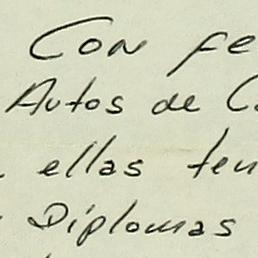 Con fe
Autos de C
ellas ten
Diplomas